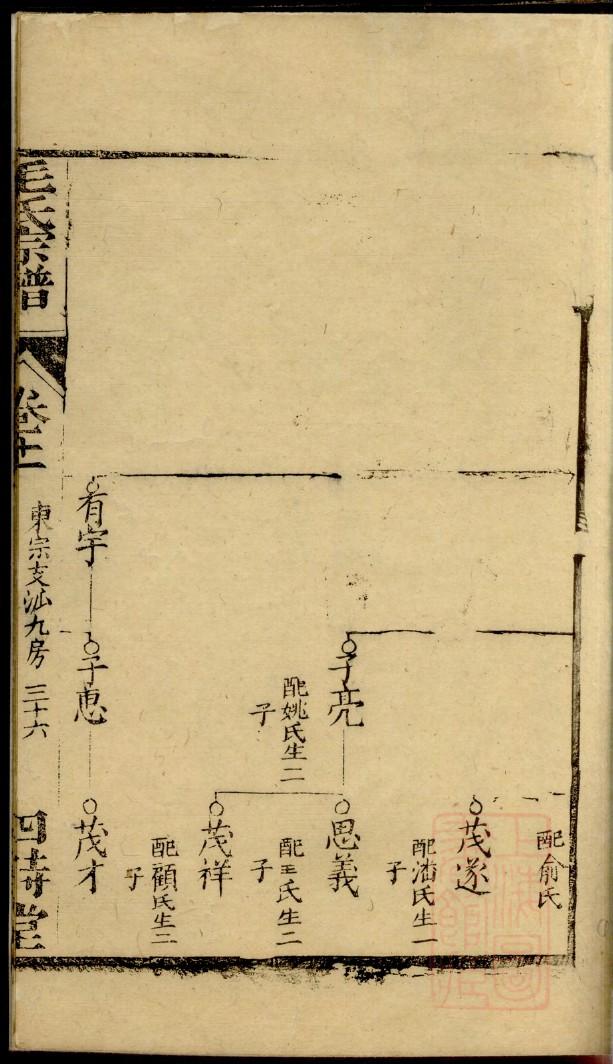 配俞氏
茂遂
配潘氏生一子
子亮
配姚氏生二子
思義
配王氏生二子
茂祥
配顧氏生二子
有宇
子惠
茂才
毛氏宗譜
卷十一
東宗支汕九房 三十六